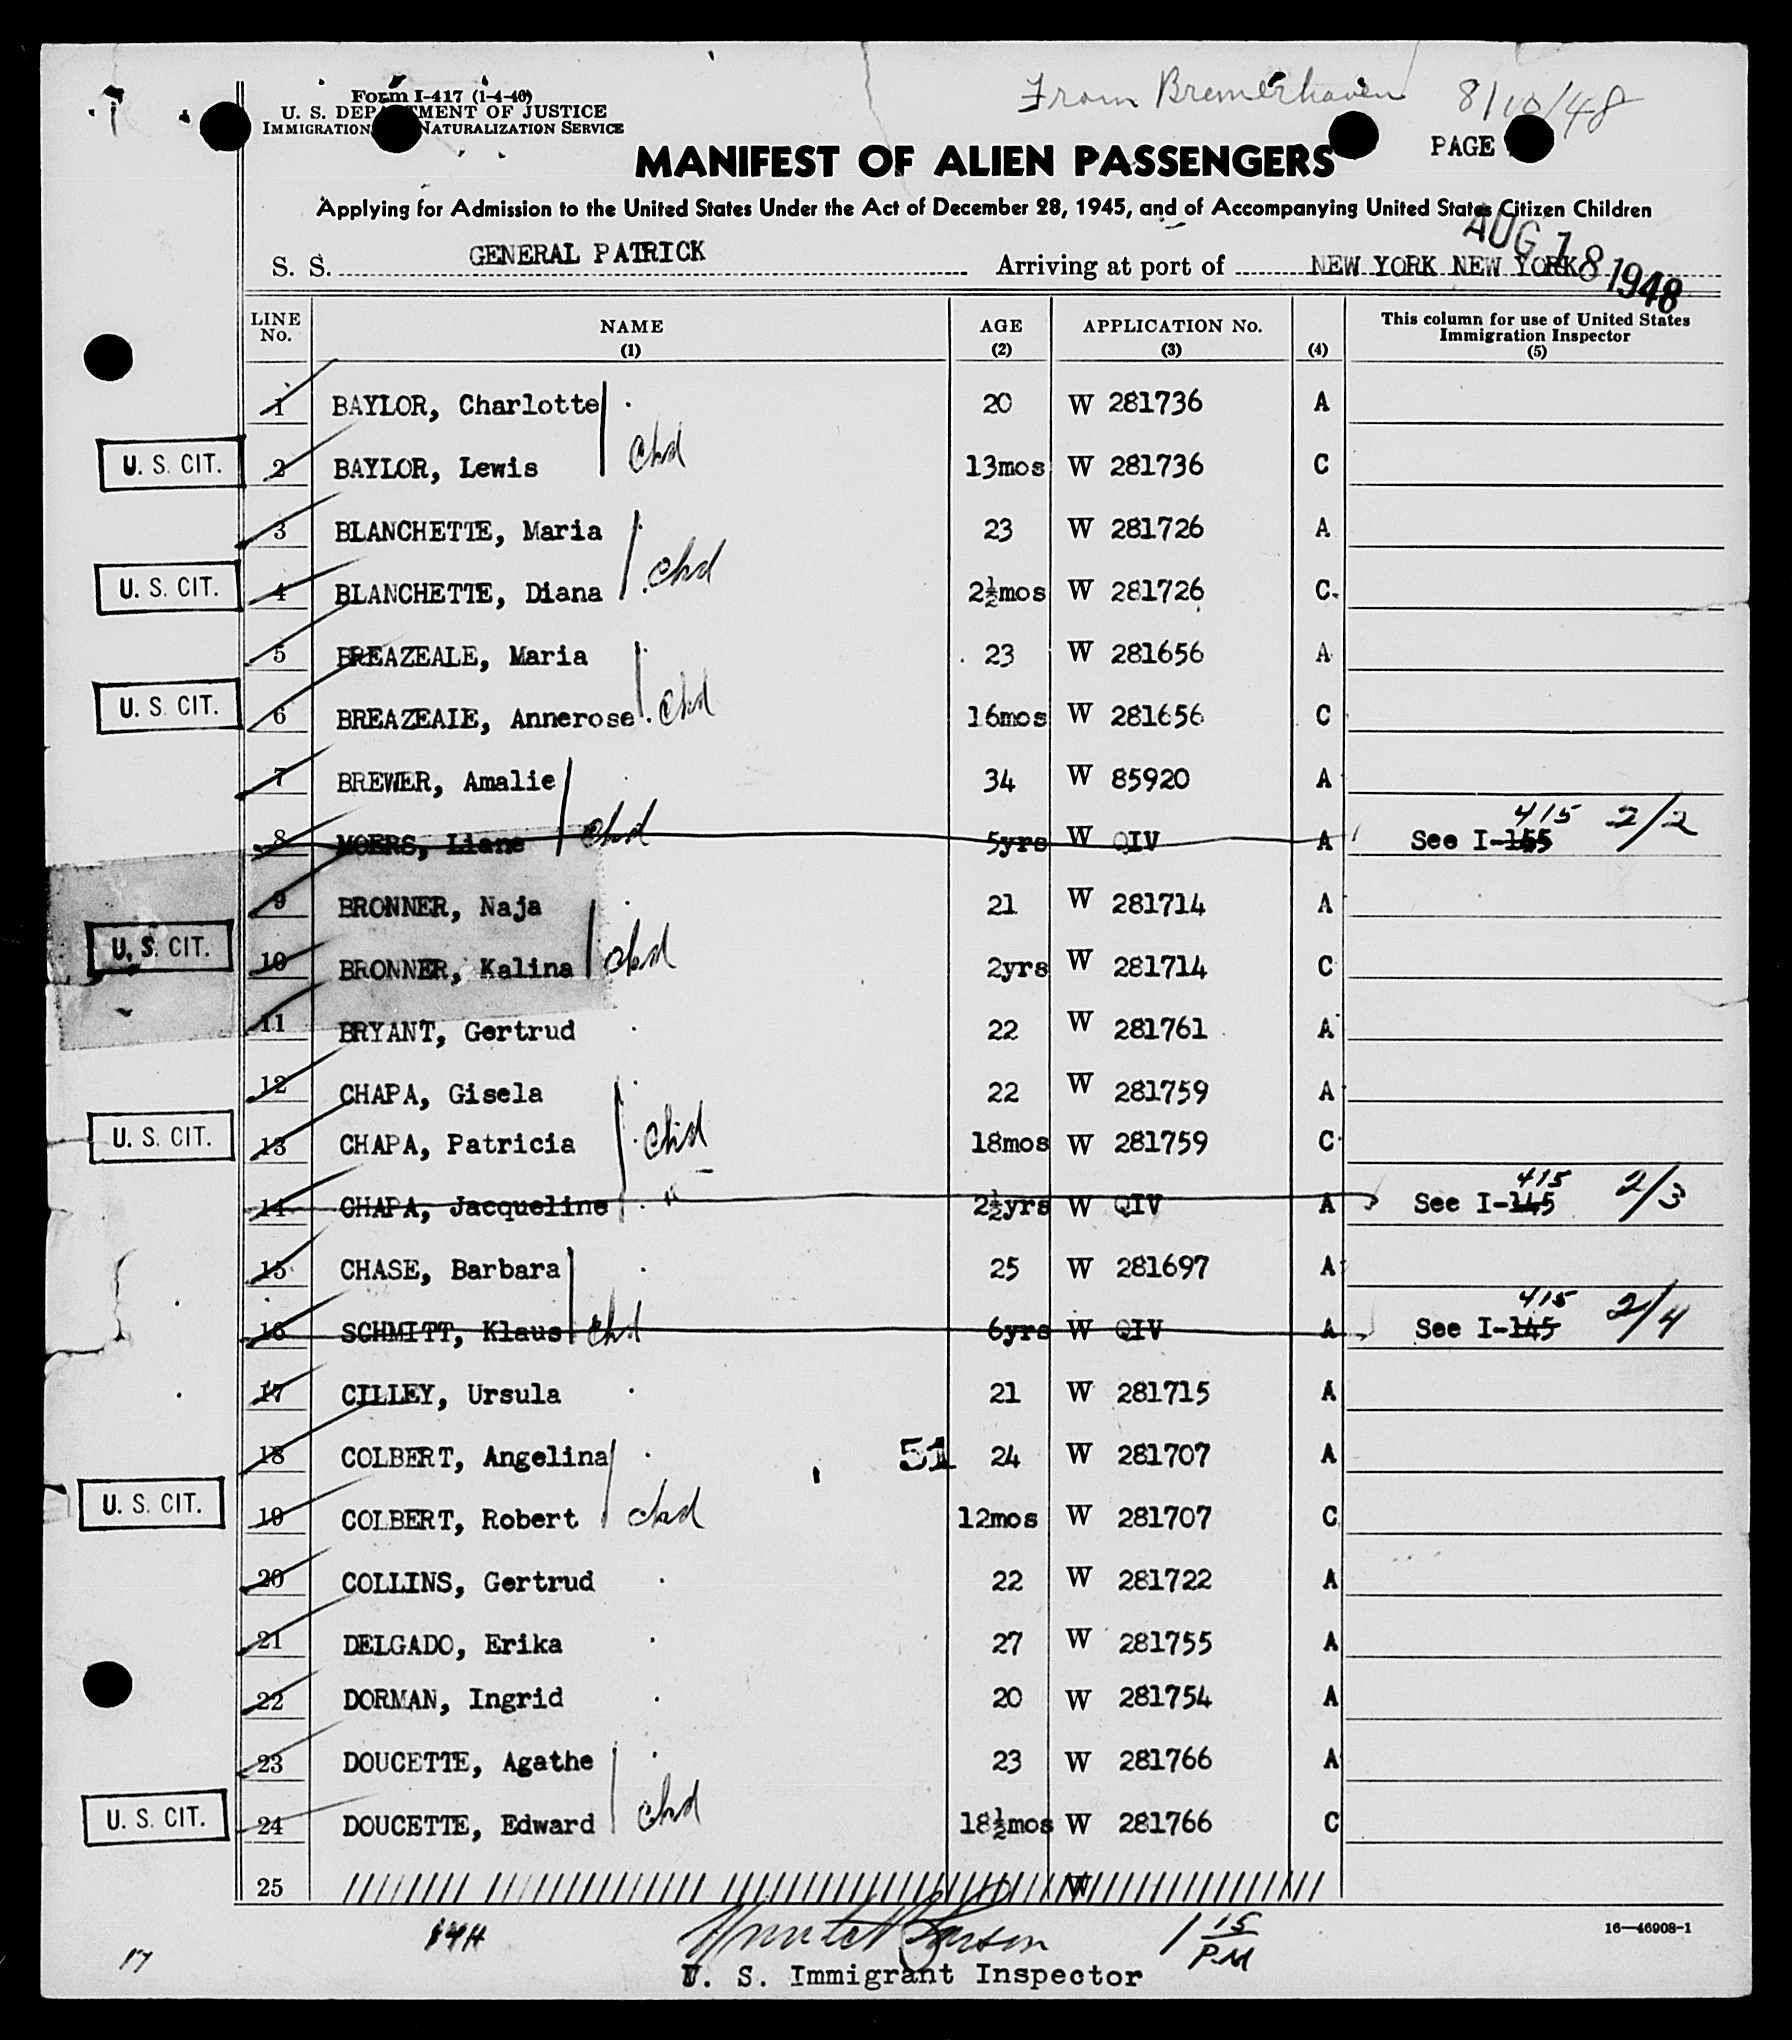 From Bremerhaven 8/10/48
Form I-417 (1-4-46)
U. S. DEPARTMENT OF JUSTICE
IMMIGRATION NATURALIZATION SERVICE
PAGE
MANIFEST OF ALIEN PASSENGERS
Applying for Admission to the United States Under the Act of December 28, 1945, and of Accompanying United States Citizen Children
AUG 18 1948
S. S. GENERAL PATRICK Arriving at port of NEW YORK NEW YORK
LINE No. NAME (1) AGE (2) APPLICATION No. (3) (4) This column for use of United States Immigration Inspector (5)
1 BAYLOR, Charlotte 20 W 281736 A
U. S. CIT. 2 BAYLOR, Lewis chd 13mos W 281736 C
3 BLANCHETTE, Maria 23 W 281726 A
U. S. CIT. 4 BLANCHETTE, Diana chd 2½mos W 281726 C
5 BREAZEALE, Maria 23 W 281656 A
U. S. CIT. 6 BREAZEALE, Annerose chd 16mos W 281656 C
7 BREWER, Amalie 34 W 85920 A
8 MOERS, Liane chd 5yrs W QIV A See I-155 415 2/2
9 BRONNER, Naja 21 W 281714 A
U. S. CIT. 10 BRONNER, Kalina chd 2yrs W 281714 C
11 BRYANT, Gertrud 22 W 281761 A
12 CHAPA, Gisela 22 W 281759 A
U. S. CIT. 13 CHAPA, Patricia chd 18mos W 281759 C
14 CHAPA, Jacqueline " 2½yrs W QIV A See I-145 415 2/3
15 CHASE, Barbara 25 W 281697 A
16 SCHMITT, Klaus chd 6yrs W QIV A See I-145 415 2/4
17 CILLEY, Ursula 21 W 281715 A
18 COLBERT, Angelina 51 24 W 281707 A
U. S. CIT. 19 COLBERT, Robert chd 12mos W 281707 C
20 COLLINS, Gertrud 22 W 281722 A
21 DELGADO, Erika 27 W 281755 A
22 DORMAN, Ingrid 20 W 281754 A
23 DOUCETTE, Agathe 23 W 281766 A
U. S. CIT. 24 DOUCETTE, Edward chd 18½mos W 281766 C
25 W
16—46908-1
17 1 15 PM
U. S. Immigrant Inspector